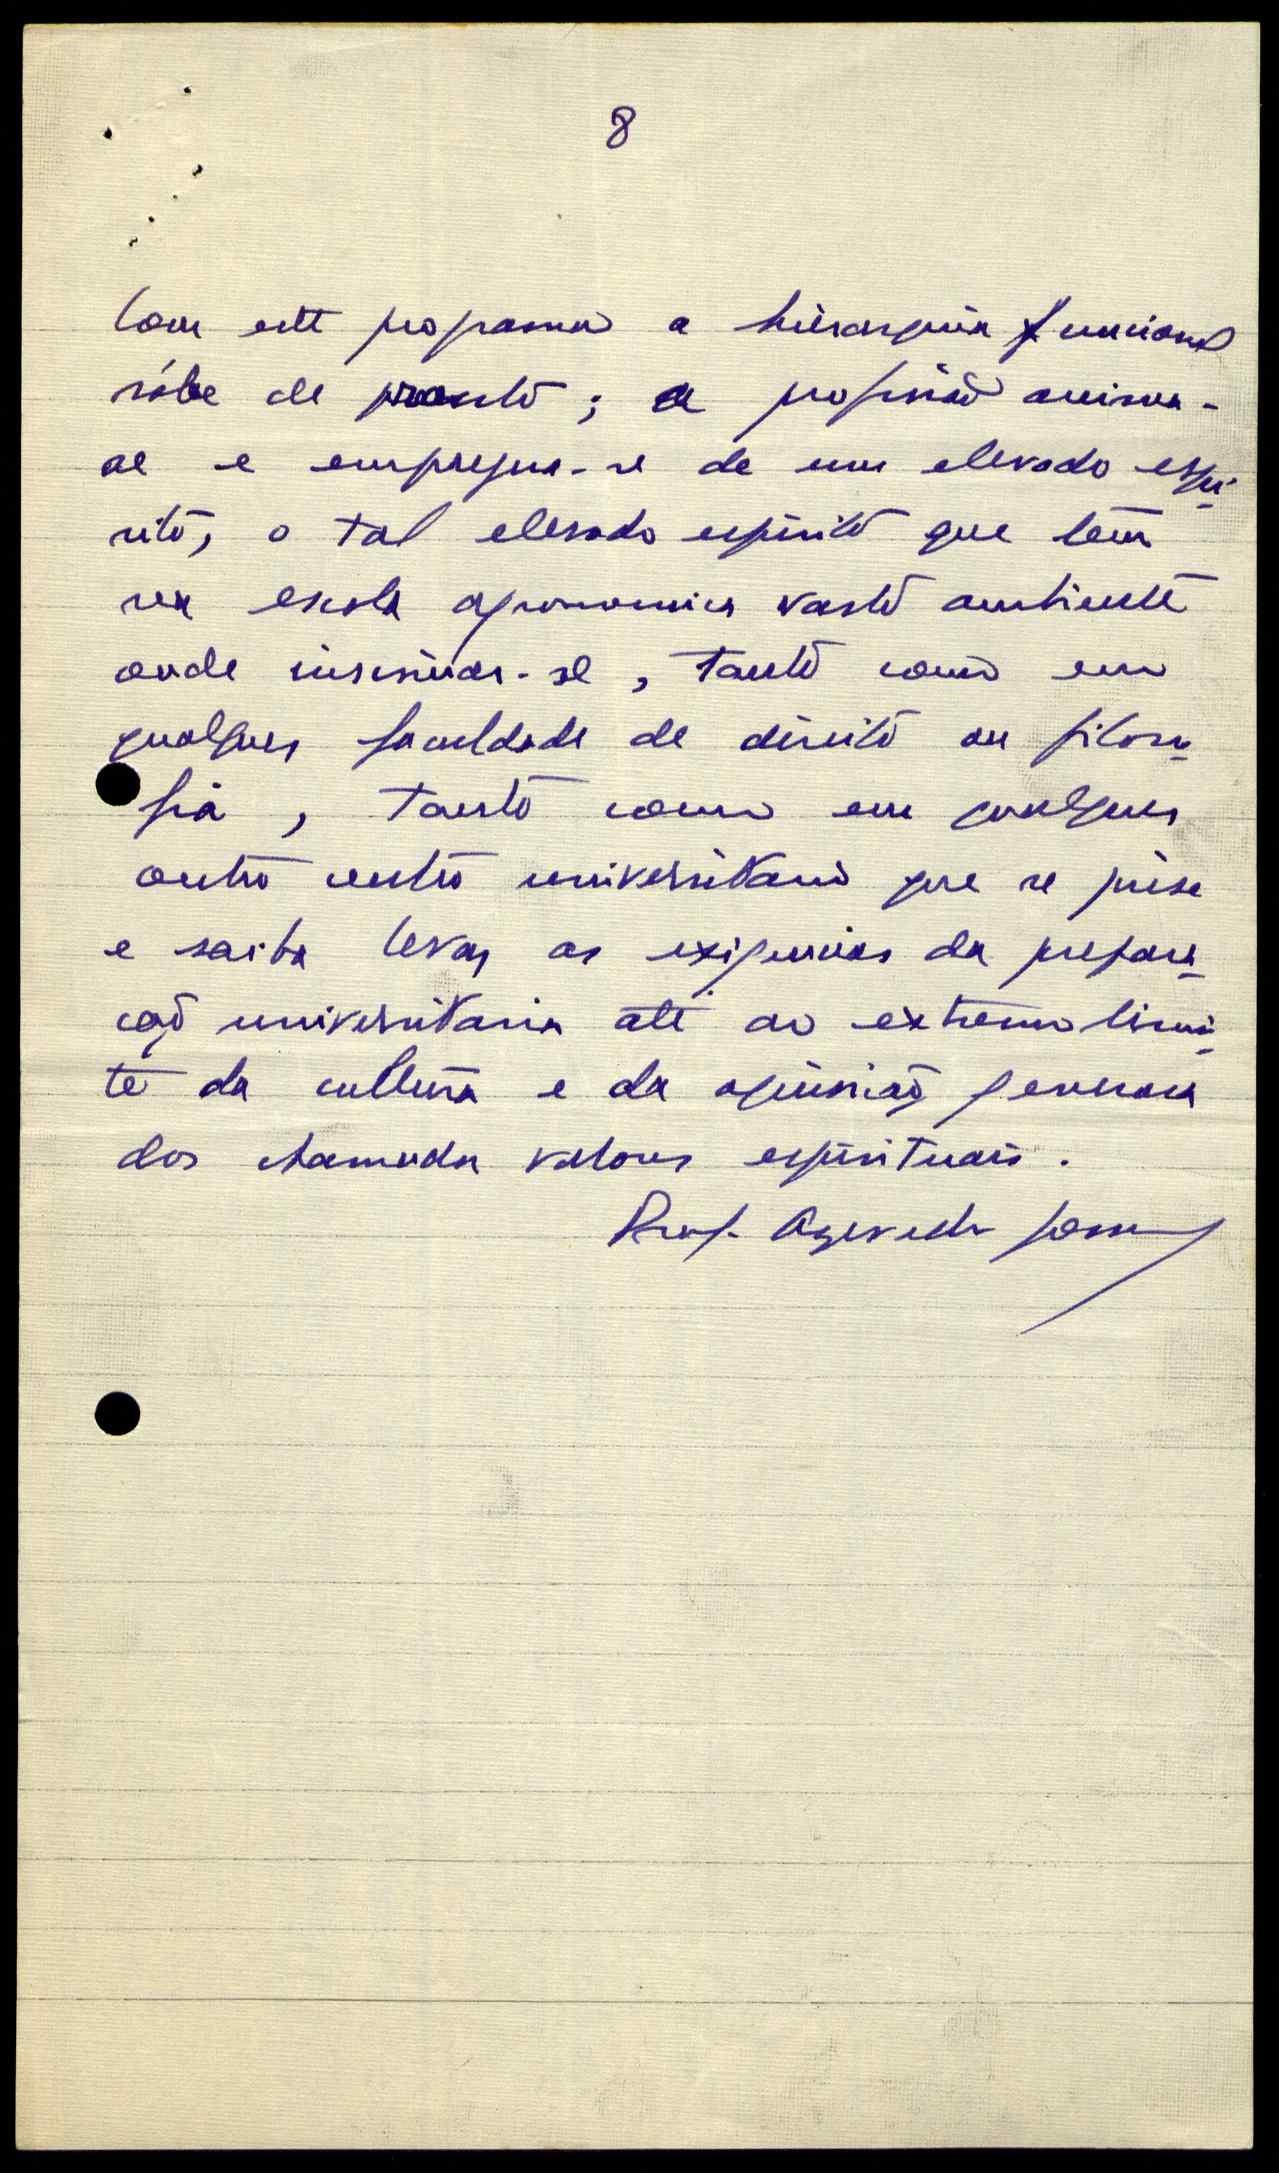 8
Com este programa a hierarquia funcional
sóbe de ; a profissão anima-
se e empregna-se de um elevado espi-
rito, o tal elevado espirito que tem
na escola agronomica vasto ambiente
onde insinuar-se, tanto como em
qualquer faculdade de direito ou filoso-
fia, tanto como em qualquer
outro centro universitario que se prése
e saiba levar as exigencias da prepara-
ção universitaria até ao extremo limi-
te da cultura e da generosa
dos chamados valores espirituais.
Prof. Azevedo Gomes